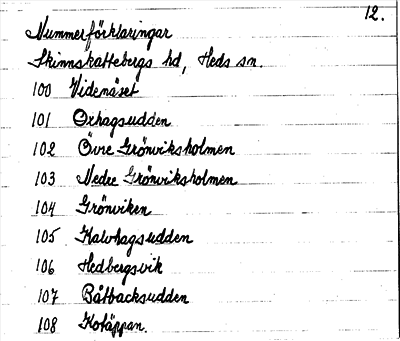 12.
Nummerförklaringar
Skinnskattebergs hd, Heds sn.
100 Videnäset
101 Oxhagsudden
102 Övre Grönviksholmen
103 Nedre Grönviksholmen
104 Grönviken
105 Kalvhagsudden
106 Hedbergsvik
107 Båtbacksudden
108 Kotäppan.